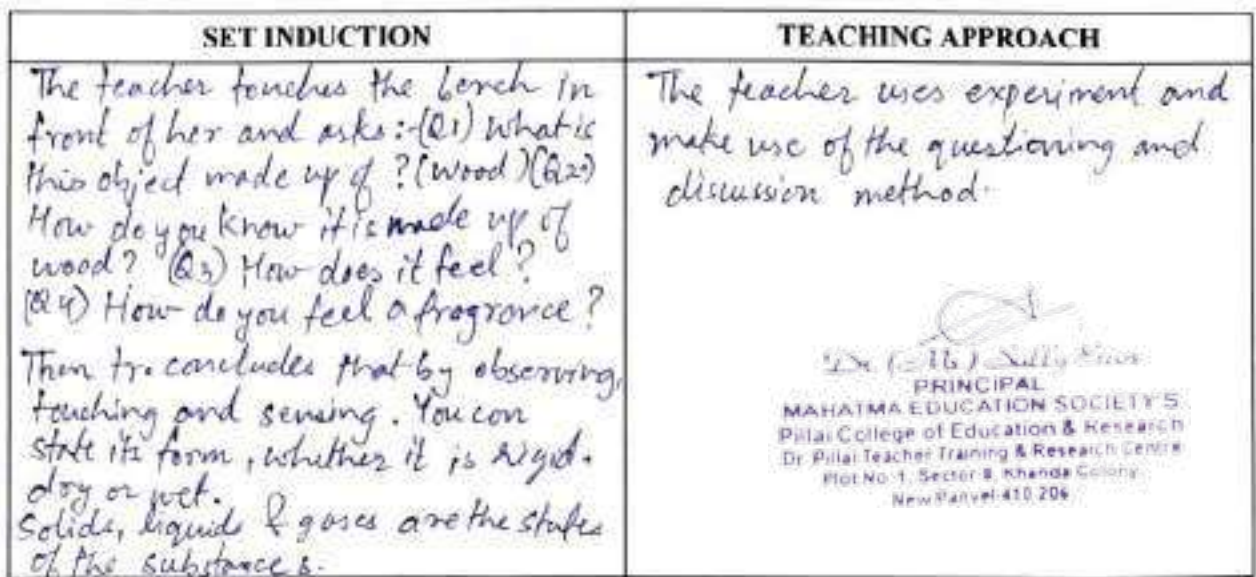 SET INDUCTION
The teacher touches the bench in
front of her and asks:-(Q1) What is
this object made up of ? (Wood) (Q2)
How do you know it is made up of
wood? (Q3) How does it feel?
(Q4) How do you feel a fragrance?
Then tr. concludes that by observing,
touching and sensing. You can
state its form, whether it is rigid.
dry or wet.
Solids, liquids & gases are the states
of the substances.
TEACHING APPROACH
The teacher uses experiment and
make use of the questioning and
discussion method.
Dr. (Ms) Sally
PRINCIPAL
MAHATMA EDUCATION SOCIETY'S
Pillai College of Education & Research
Dr. Pillai Teacher Training & Research Centre
Plot No. 1, Sector 8, Khanda Colony
New Panvel-410 206